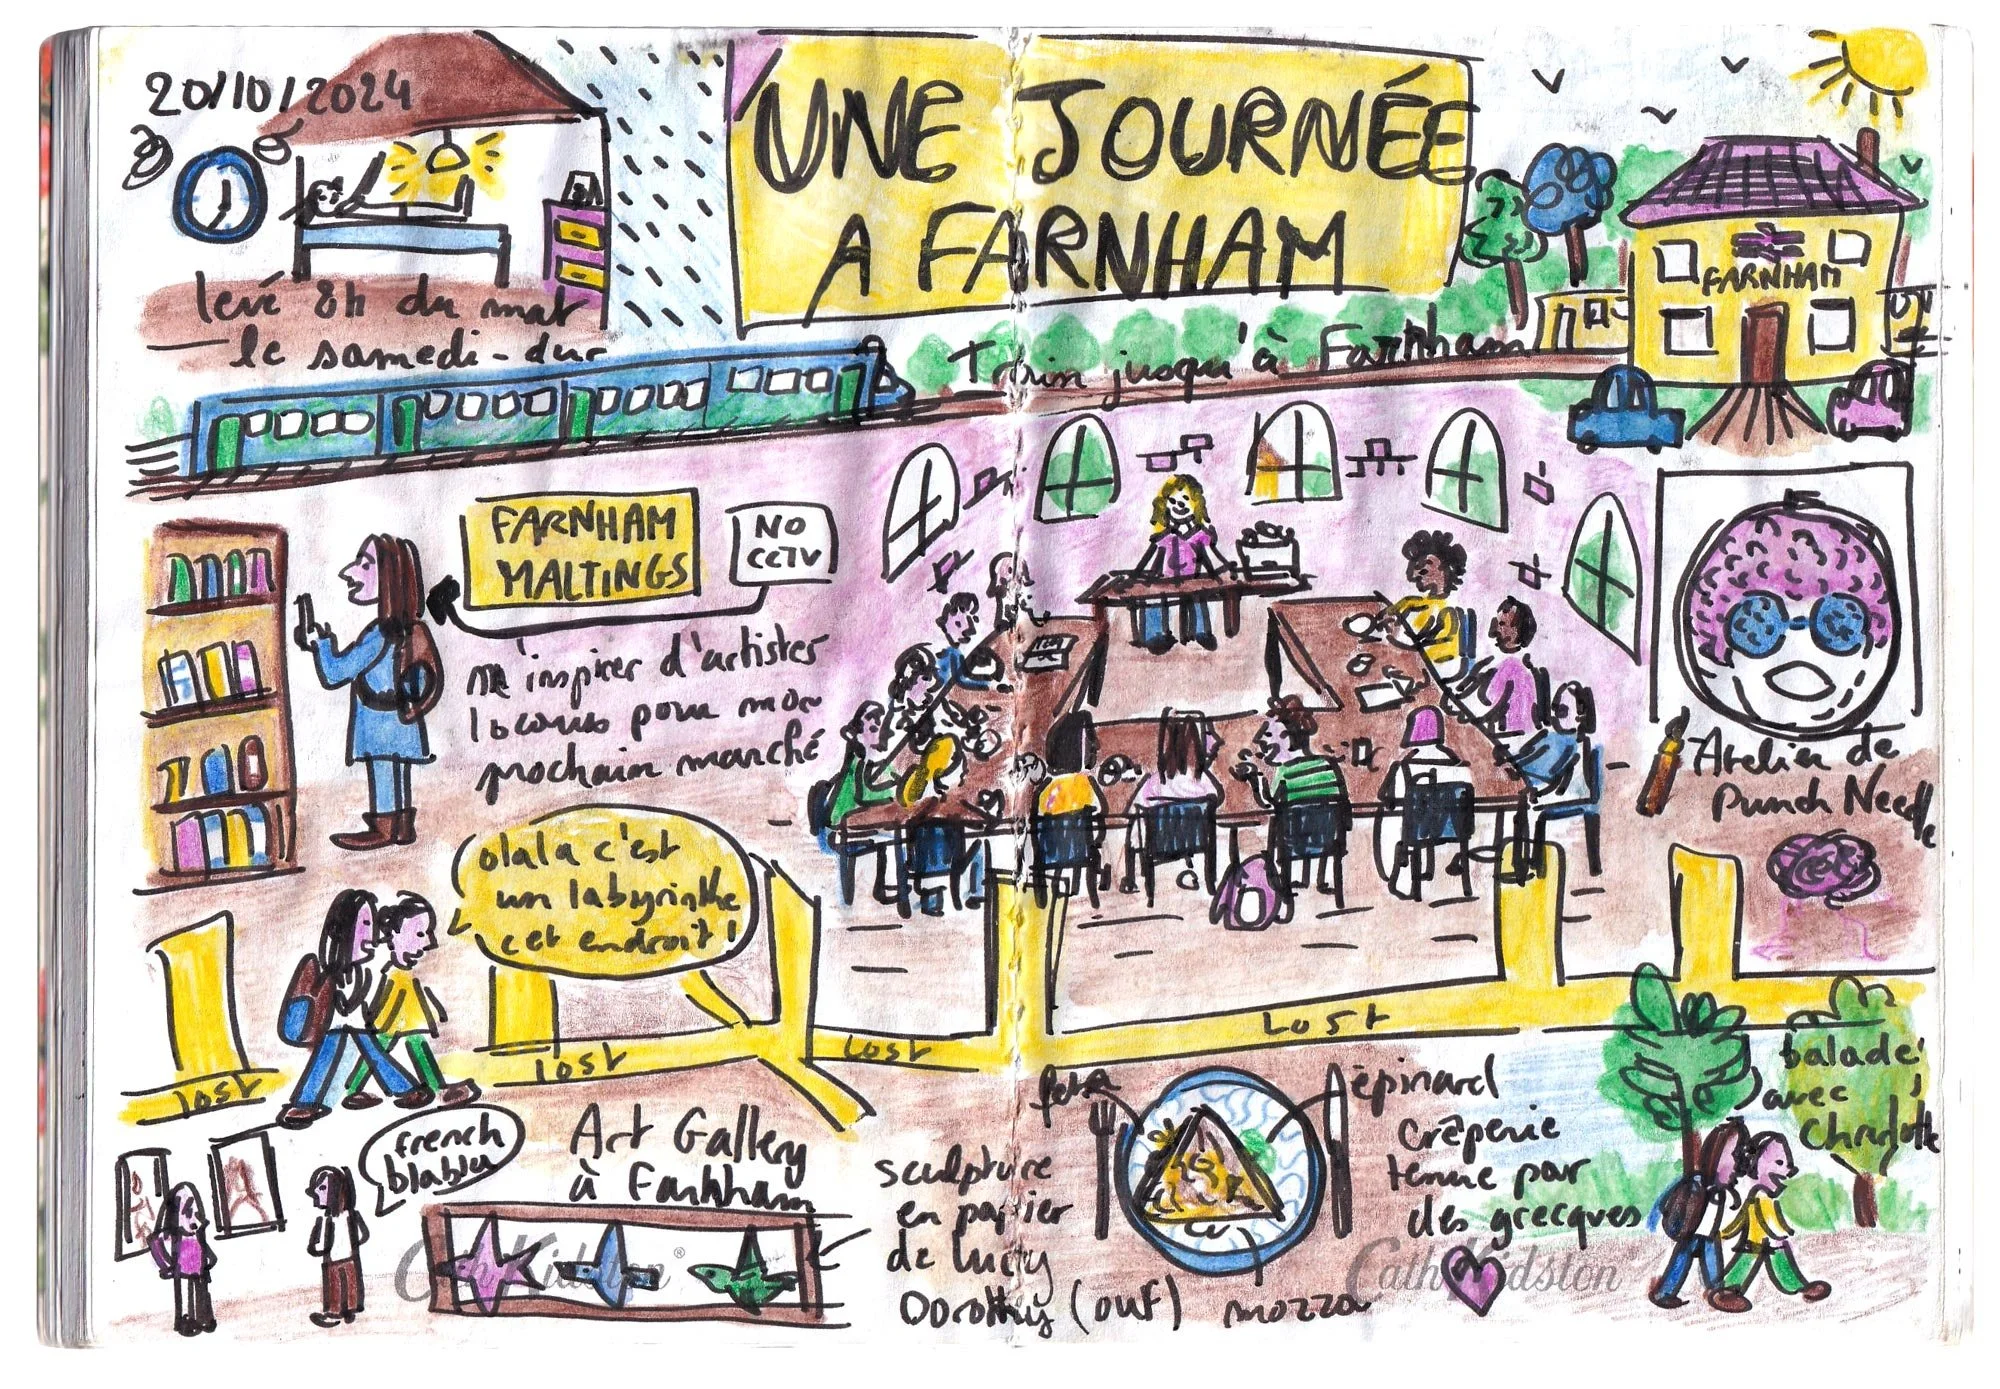 20/10/2024
UNE JOURNÉE
A FARNHAM
levé 8h du mat
le samedi - dur
Train jusqu'à Farnham
FARNHAM
FARNHAM
MALTINGS
NO
CCTV
m'inspirer d'artistes
locaux pour mon
prochain marché
Atelier de
Punch Needle
olala c'est
un labyrinthe
cet endroit !
lost
lost
lost
Lost
french
blabla
Art Gallery
à Farnham
sculpture
en papier
de lucy
Dorothy (ouf)
feta
épinard
mozza
Crêperie
tenue par
des grecques
balade
avec
Charlotte
Cath Kidston®
Cath Kidston